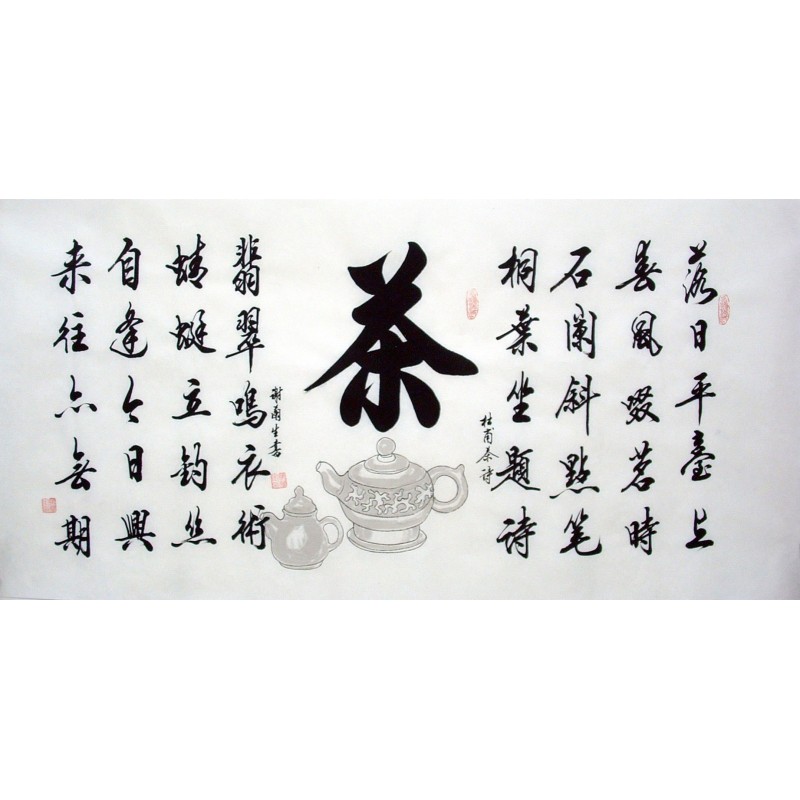 落日平臺上
春風啜茗時
石闌斜點笔
桐葉坐題詩
杜甫茶詩
茶
翡翠鳴衣術
蜻蜓立釣絲
自逢今日興
来往亦無期
生書